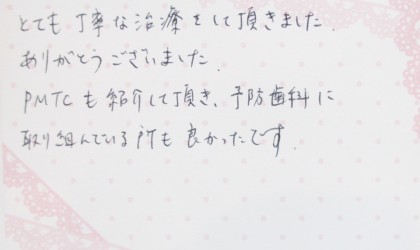 とても丁寧な治療をして頂きました.
ありがとうございました.
PMTCも紹介して頂き、予防歯科に
取り組んでいる所も良かったです.